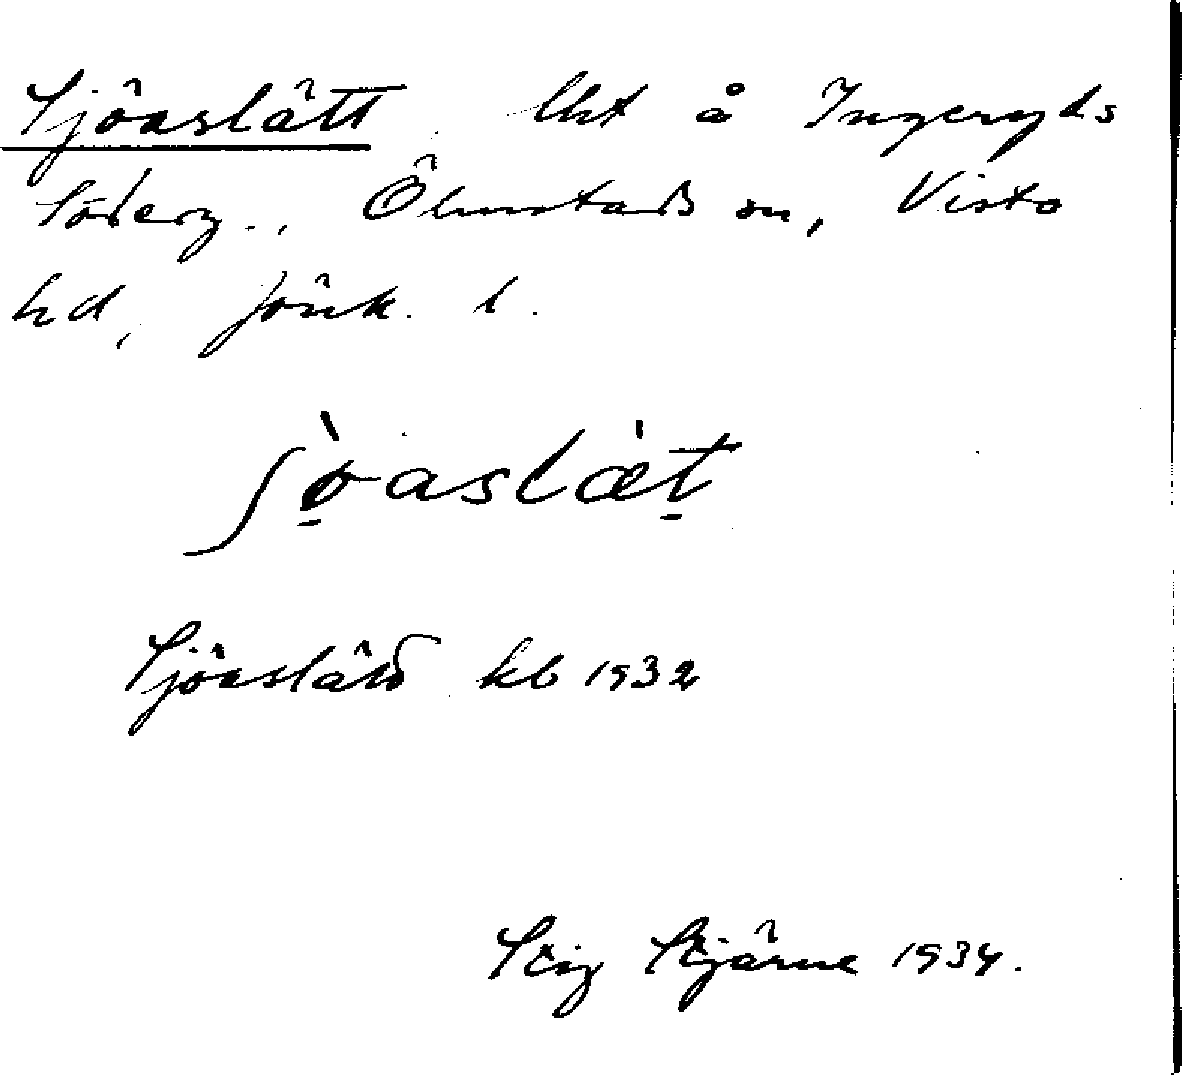 Sjöaslätt lht å Ingeryds
Söderg., Ölmstads sn, Vista
hd, Jönk. l.
ʃø̠̀aslæ̀t̠
Sjöaslätt kb 1932
Stig Stjärne 1934.